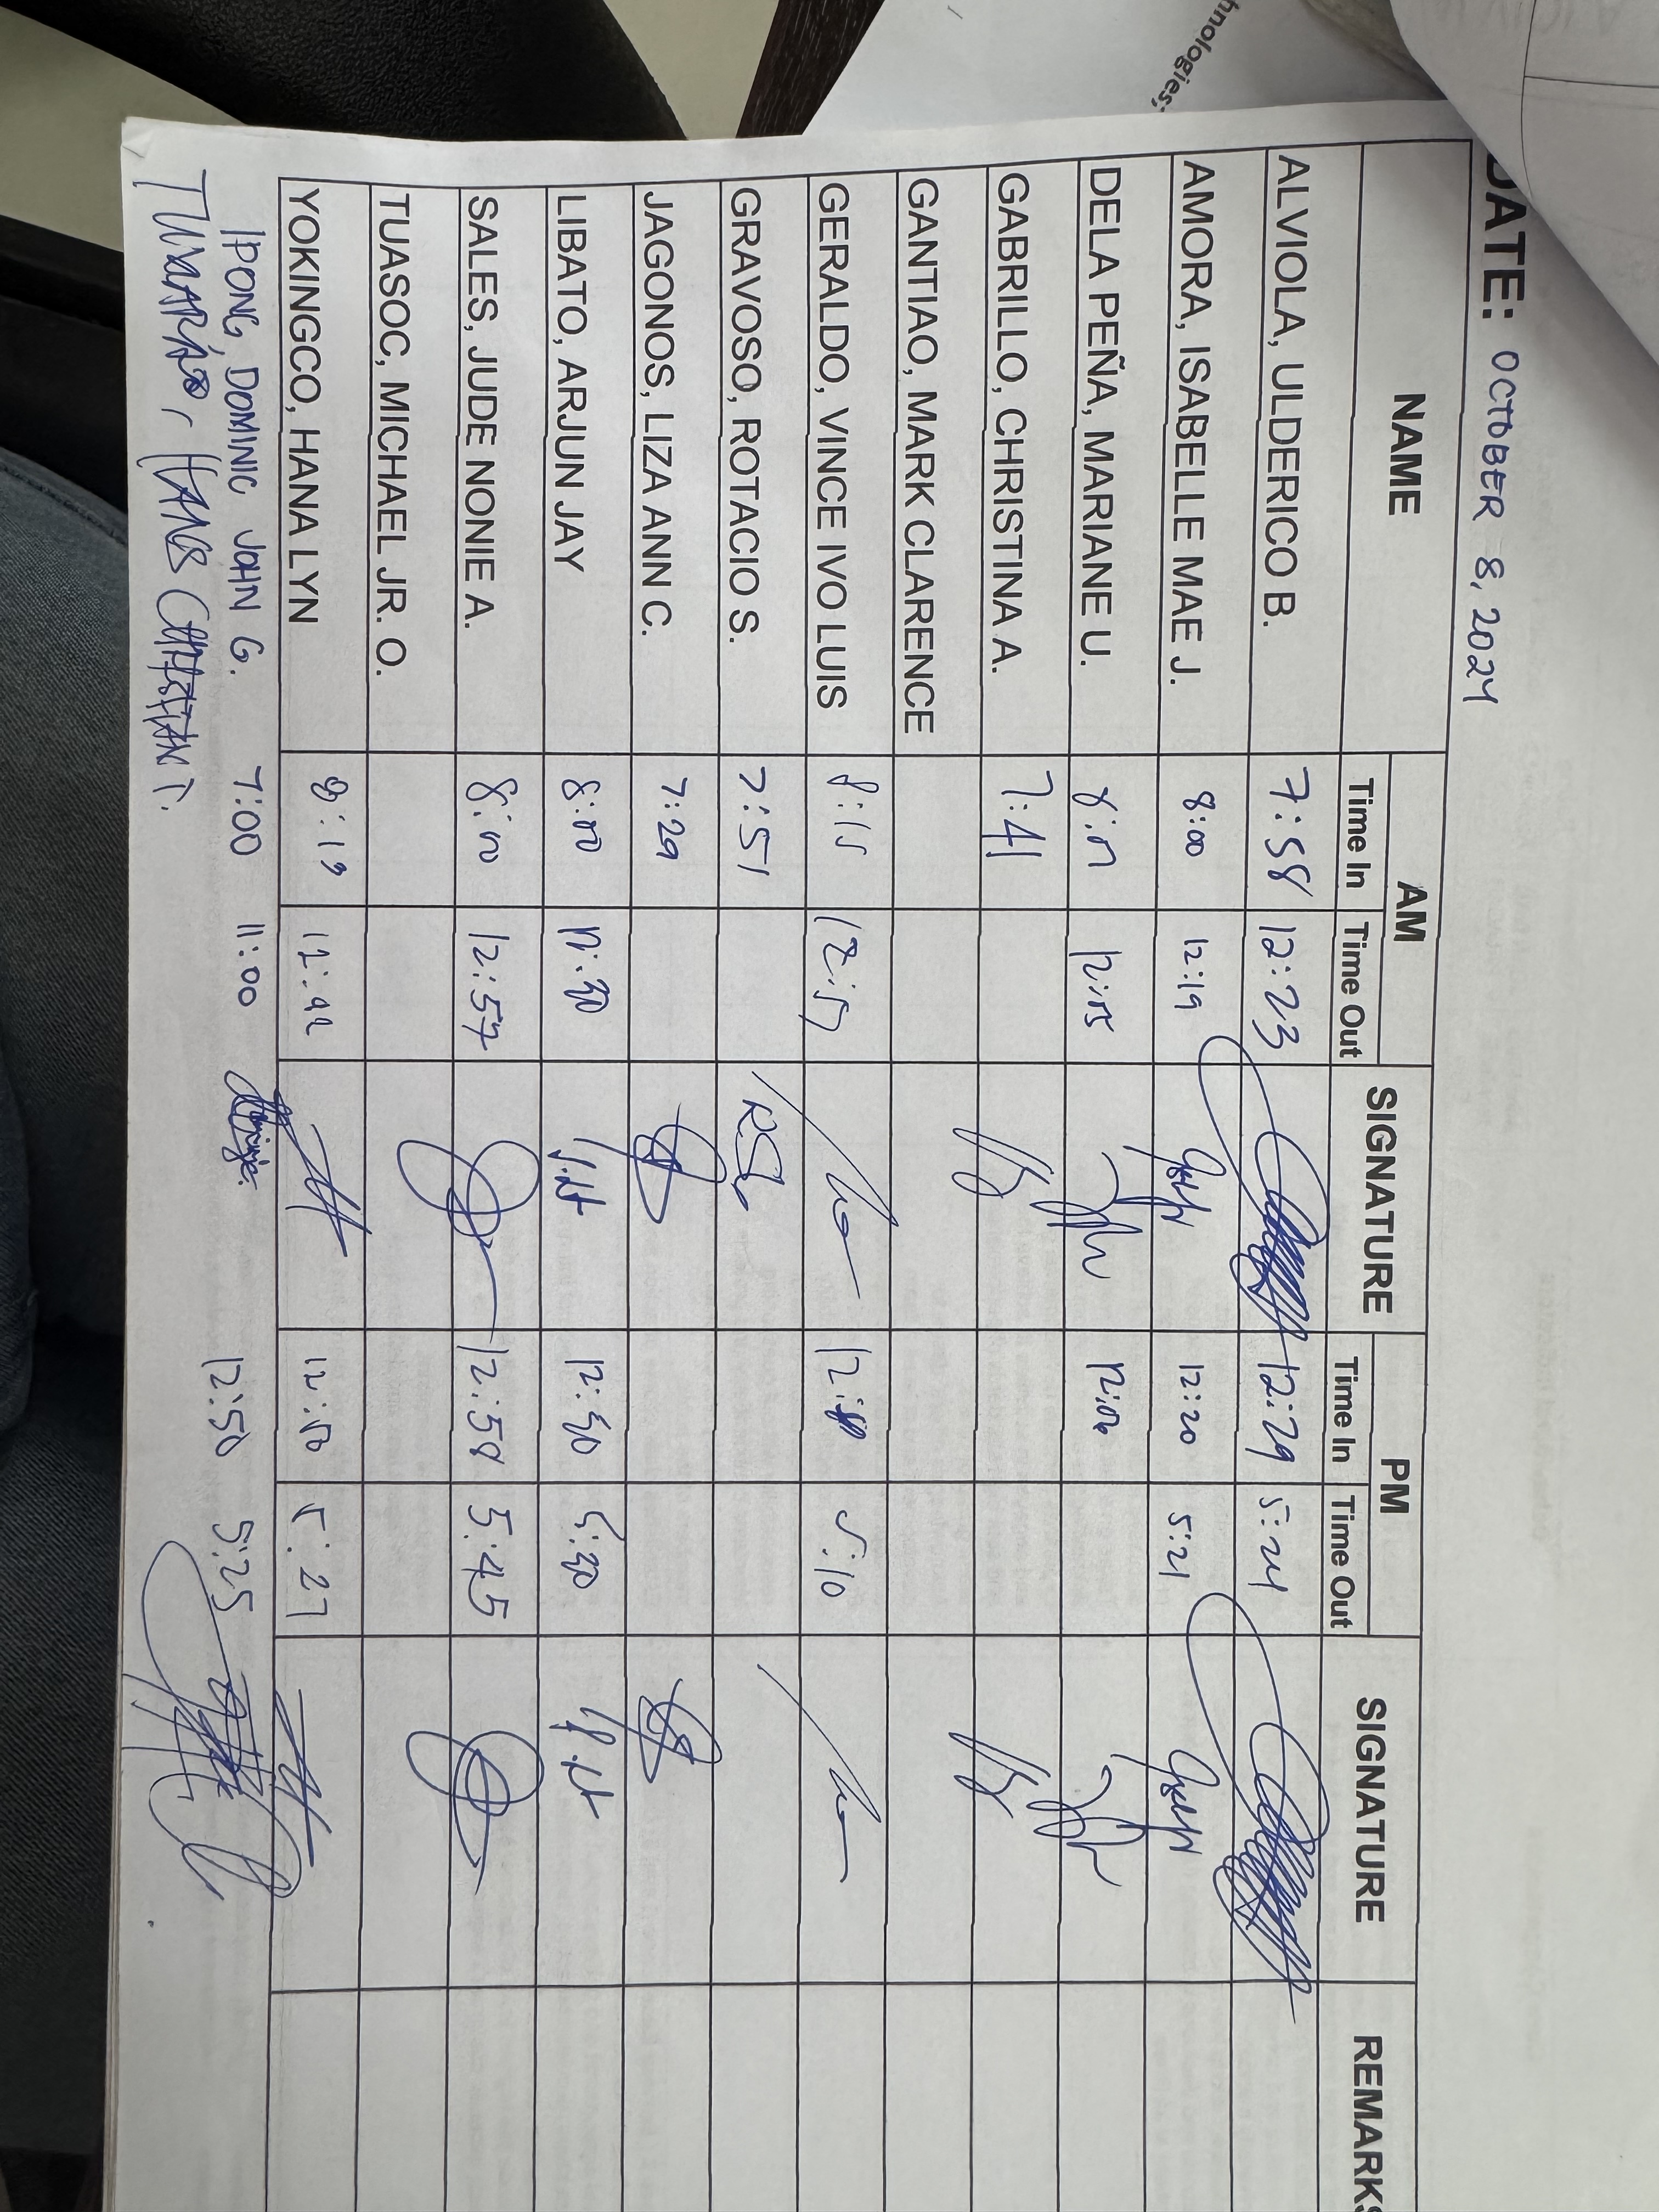 hnologies;
DATE: OCTOBER 8, 2024
NAME AM SIGNATURE PM SIGNATURE REMARKS
Time In Time Out Time In Time Out
ALVIOLA, ULDERICO B. 7:58 12:23 12:29 5:24
AMORA, ISABELLE MAE J. 8:00 12:19 12:20 5:21
DELA PEÑA, MARIANE U. 12:05 12:06
GABRILLO, CHRISTINA A. 7:41
GANTIAO, MARK CLARENCE
GERALDO, VINCE IVO LUIS 8:15 5:10
GRAVOSO, ROTACIO S. 7:51
JAGONOS, LIZA ANN C. 7:29
LIBATO, ARJUN JAY 8:00 12:30 12:30 5:30
SALES, JUDE NONIE A. 8:00 12:57 12:58 5:45
TUASOC, MICHAEL JR. O.
YOKINGCO, HANA LYN 8:19 12:50 5:27
IPONG, DOMINIC JOHN G. 7:00 11:00 12:50 5:25
HANS CHRISTIAN T.